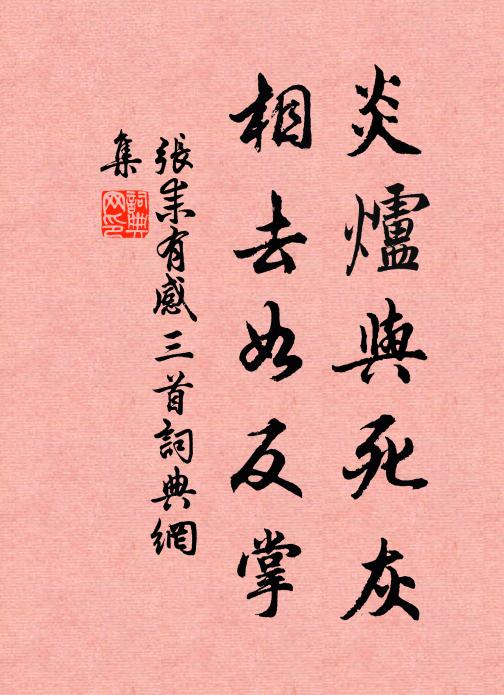 炎爐與死灰
相去如反掌
張耒有感三首詞典網
集
詞典
网印